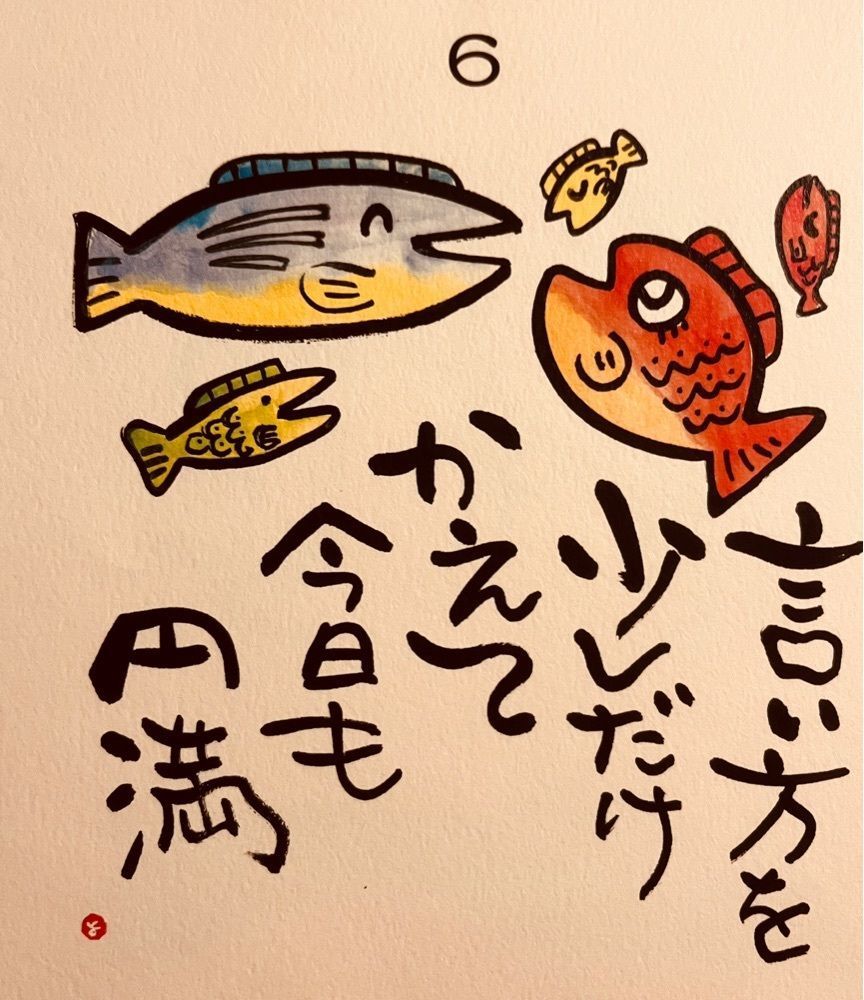 6
言い方を
少しだけ
かえて
今日も
円満
よ